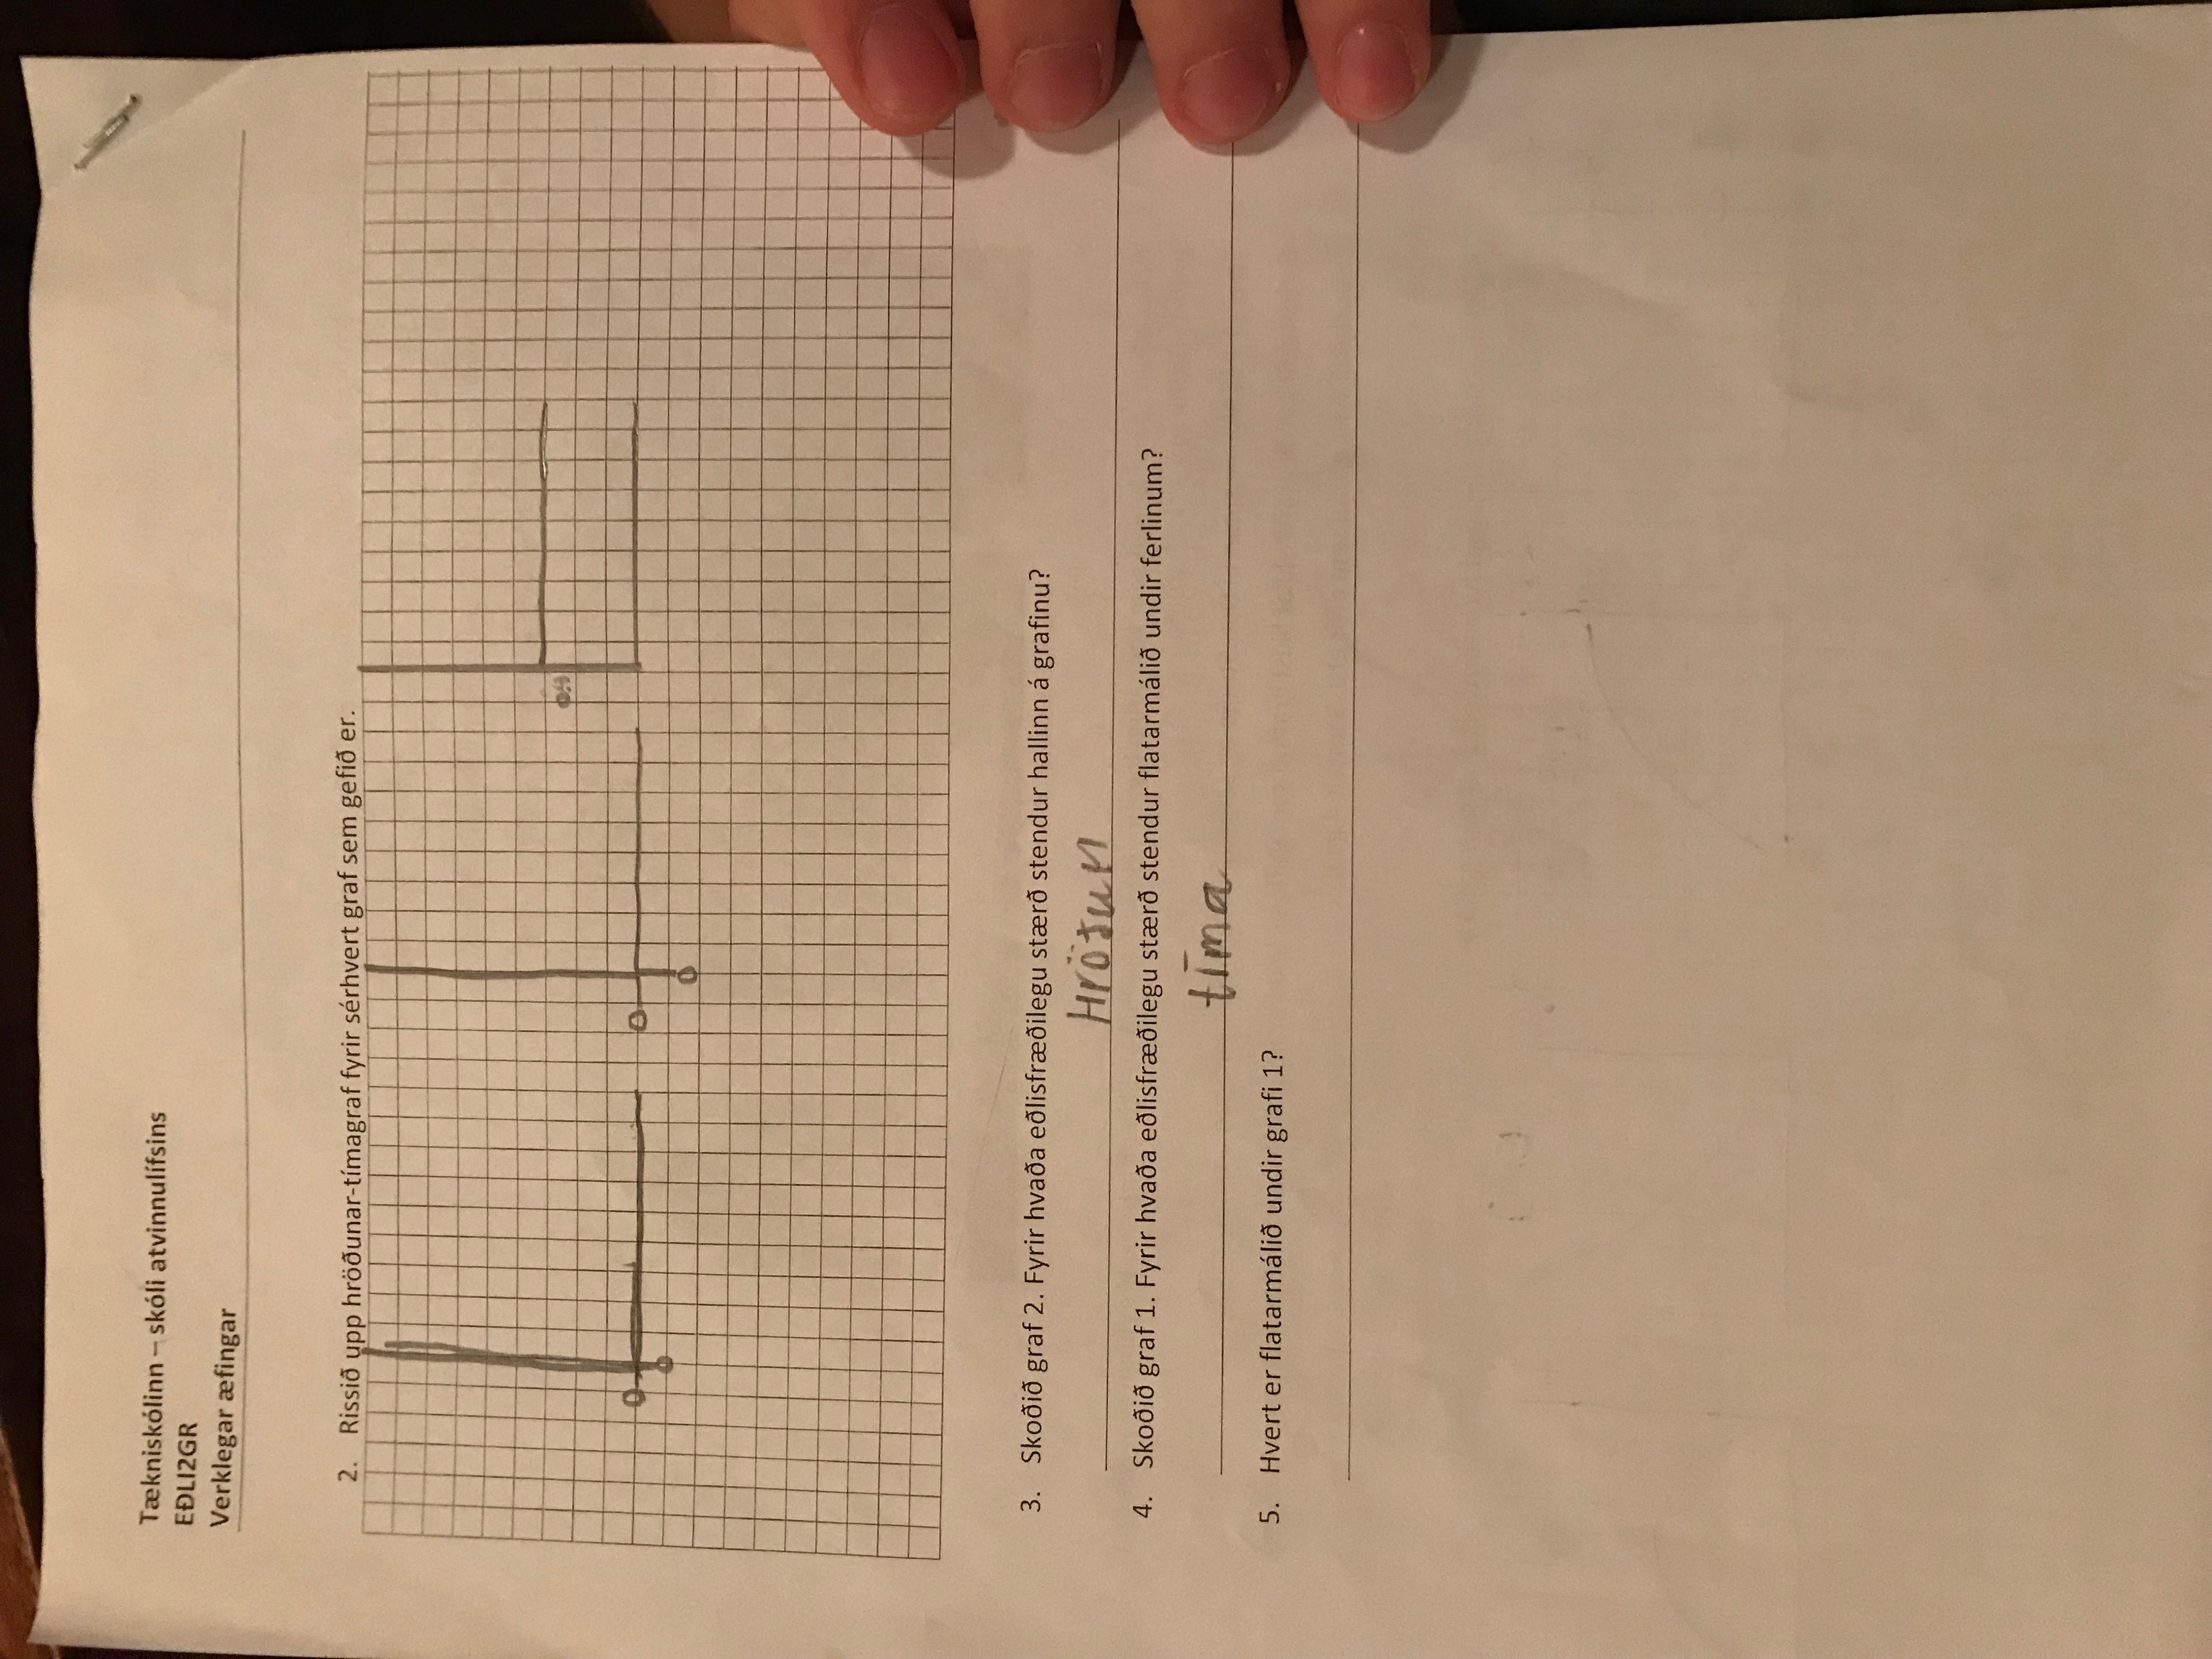 Tækniskólinn – skóli atvinnulífsins
EÐLI2GR
Verklegar æfingar
2. Rissið upp hröðunar-tímagraf fyrir sérhvert graf sem gefið er.
0.4
0 0
0 0
3. Skoðið graf 2. Fyrir hvaða eðlisfræðilegu stærð stendur hallinn á grafinu?
Hröðun
4. Skoðið graf 1. Fyrir hvaða eðlisfræðilegu stærð stendur flatarmálið undir ferlinum?
tíma
5. Hvert er flatarmálið undir grafi 1?